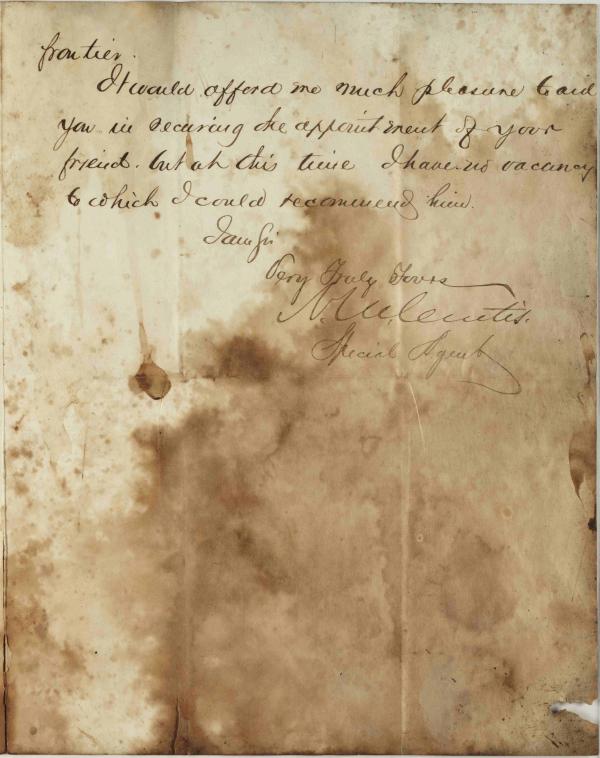 frontier.
It would afford me much pleasure to aid
you in securing the appointment of your
friend. but at this time I have no vacancy
to which I could recommend him.
I am Sir
Very Truly Yours
Special Agent